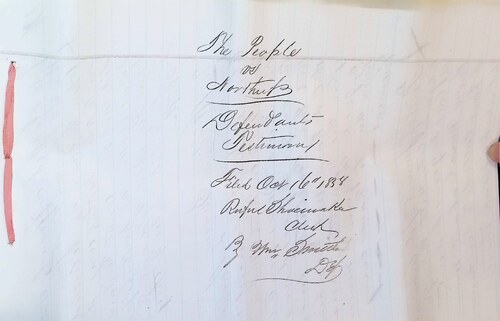 The People
vs
Northup
Defendants
Testimony
Filed Oct 16th 1858
Rufus Shoemaker
Clerk
By Wm Smith
Dy